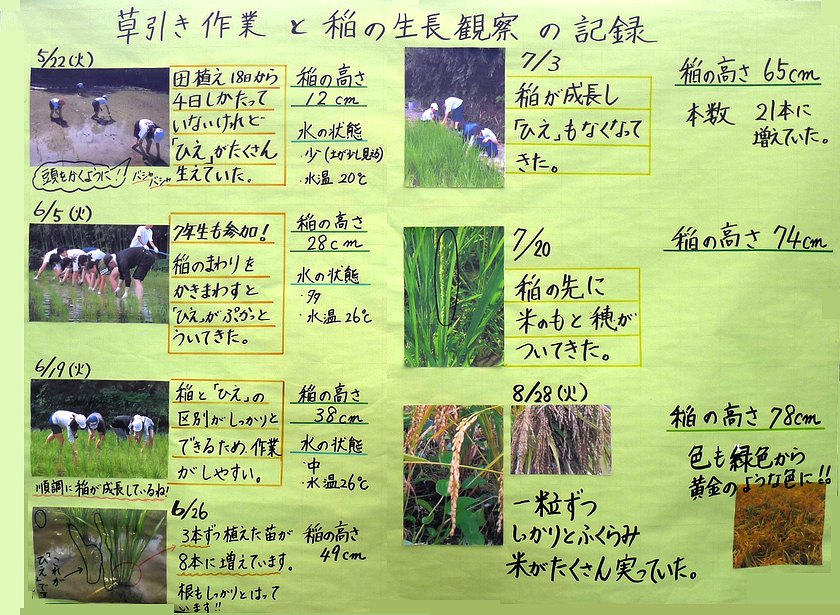 草引き作業と稲の生長観察の記録
5/22(火)
田植え18日から
4日しかたって
いないけれど
「ひえ」がたくさん
生えていた。
稲の高さ
12cm
水の状態
・少(土が少し見える)
・水温20℃
頭をかくように!!
バシャバシャ
6/5(火)
7年生も参加!
稲のまわりを
かきまわすと
「ひえ」がぷかっと
ういてきた。
稲の高さ
28cm
水の状態
・多
・水温26℃
6/19(火)
稲と「ひえ」の
区別がしっかりと
できるため、作業
がしやすい。
稲の高さ
38cm
水の状態
・中
・水温26℃
順調に稲が成長しているね!
6/26
3本ずつ植えた苗が
8本に増えています。
根もしっかりとはって
います!!
稲の高さ
49cm
これが
「ひえ」です
7/3
稲が成長し
「ひえ」もなくなって
きた。
稲の高さ 65cm
本数 21本に
増えていた。
7/20
稲の先に
米のもと穂が
ついてきた。
稲の高さ 74cm
8/28(火)
一粒ずつ
しっかりとふくらみ
米がたくさん実っていた。
稲の高さ 78cm
色も緑色から
黄金のような色に!!